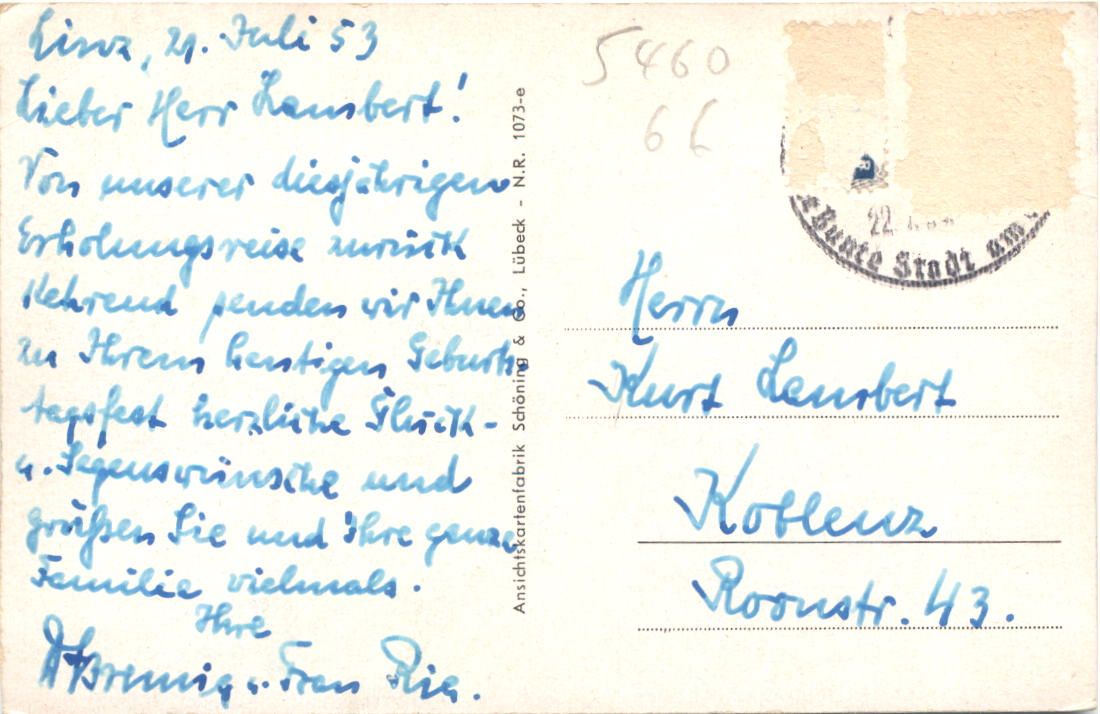 Linz, 21. Juli 53
Lieber Herr Lambert!
Von unserer diesjährigen
Erholungsreise zurück
kehrend senden wir Ihnen
zu Ihrem heutigen Geburts
tagsfest herzliche Glück-
u. Segenswünsche und
grüßen Sie und Ihre ganze
Familie vielmals.
Ihre
u. Frau Ria.
Ansichtskartenfabrik Schöning & Co., Lübeck - N.R. 1073-e
5460
66
22
Bunte Stadt am
Herrn
Kurt Lambert
Koblenz
Roonstr. 43.